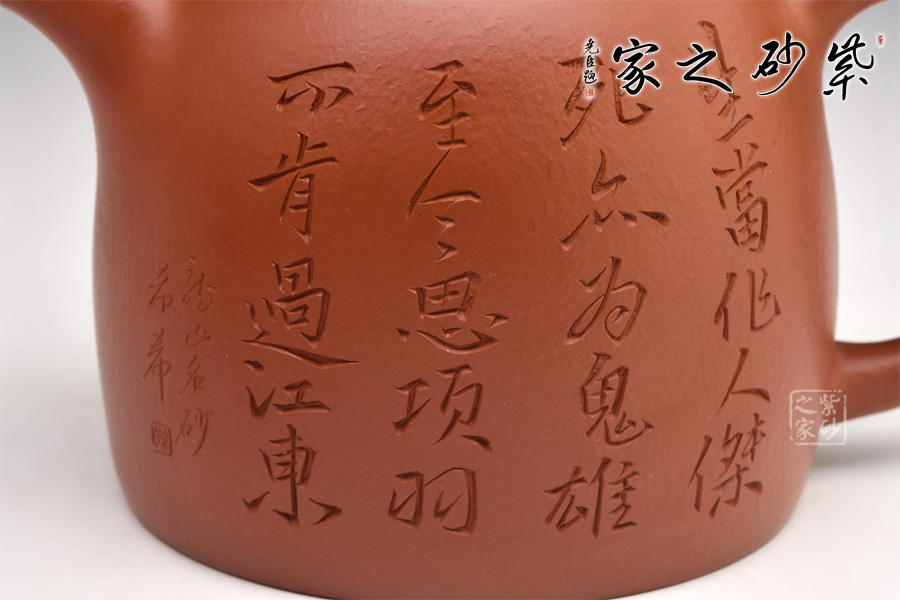 紫砂之家
尭臣題
生當作人傑
死亦为鬼雄
至今思项羽
不肯過江東
龙山名砂
希希
紫砂之家